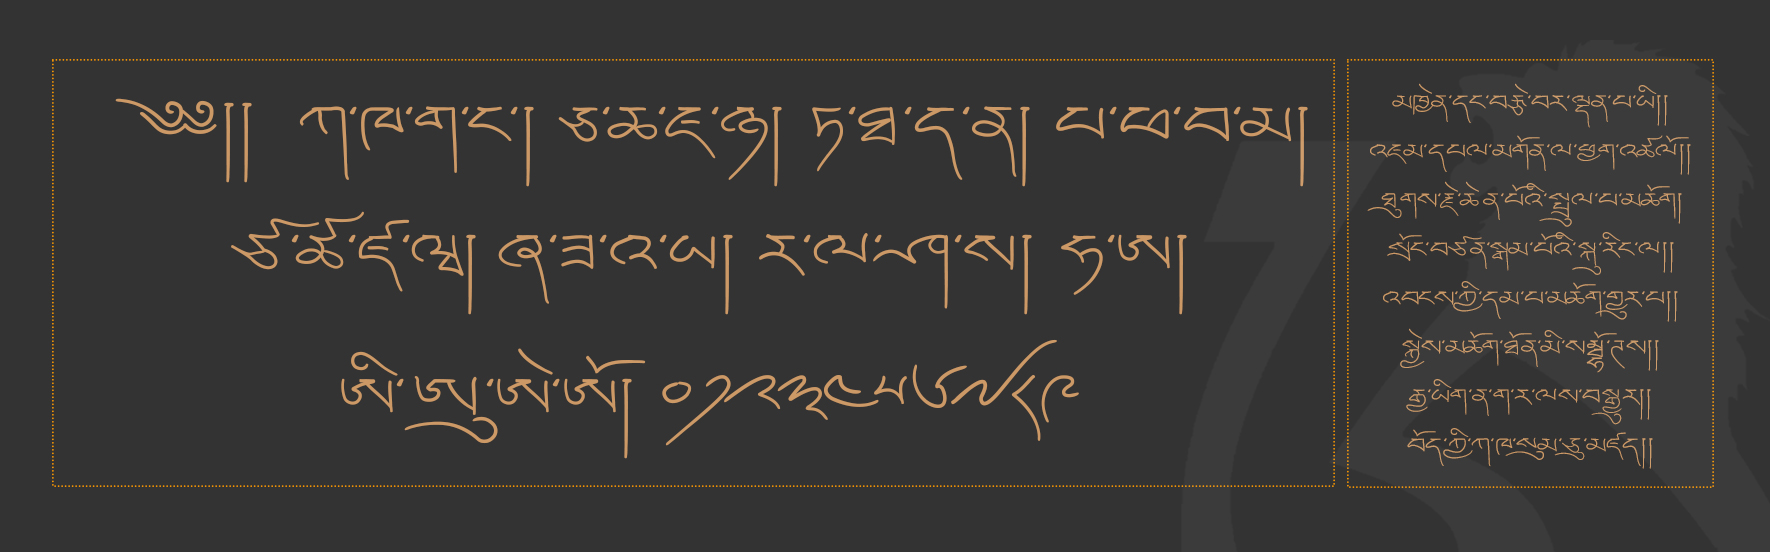 ༄༅།། ཀ་ཁ་ག་ང་། ཅ་ཆ་ཇ་ཉ། ཏ་ཐ་ད་ན། པ་ཕ་བ་མ།
ཙ་ཚ་ཛ་ཝ། ཞ་ཟ་འ་ཡ། ར་ལ་ཤ་ས། ཧ་ཨ།
ཨི་ཨུ་ཨེ་ཨོ། ༠༡༢༣༤༥༦༧༨༩
མཁྱེན་དང་བརྩེ་བར་ལྡན་པ་ཡི།།
འཇམ་དཔལ་མགོན་ལ་ཕྱག་འཚལོ།།
ཐུགས་རྗེ་ཆེན་པོའི་སྤྲུལ་པ་མཆོག།
སྲོང་བཙན་སྒམ་པོའི་སྐུ་རིང་ལ།།
འབངས་ཀྱི་དམ་པ་མཆོག་གྱུར་པ།།
སྐྱེས་མཆོག་ཐོན་མི་སམྦྷོ་ཊས།།
རྒྱ་ཡིག་ན་ག་ར་ལས་བསྒྱུར།།
བོད་ཀྱི་ཀ་ཁ་སུམ་ཅུ་མཛད།།